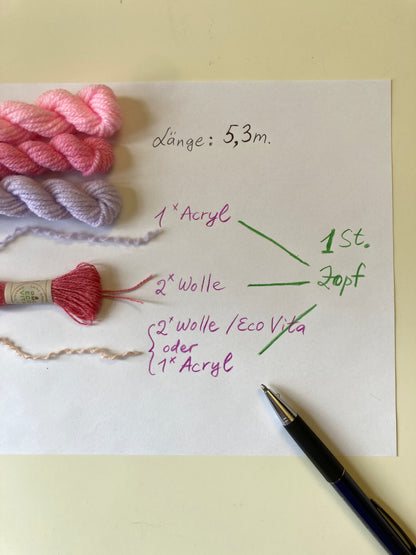 Länge: 5,3m.
1x Acryl
2x Wolle
2x Wolle / Eco Vita
oder
1x Acryl
1 St.
Zopf